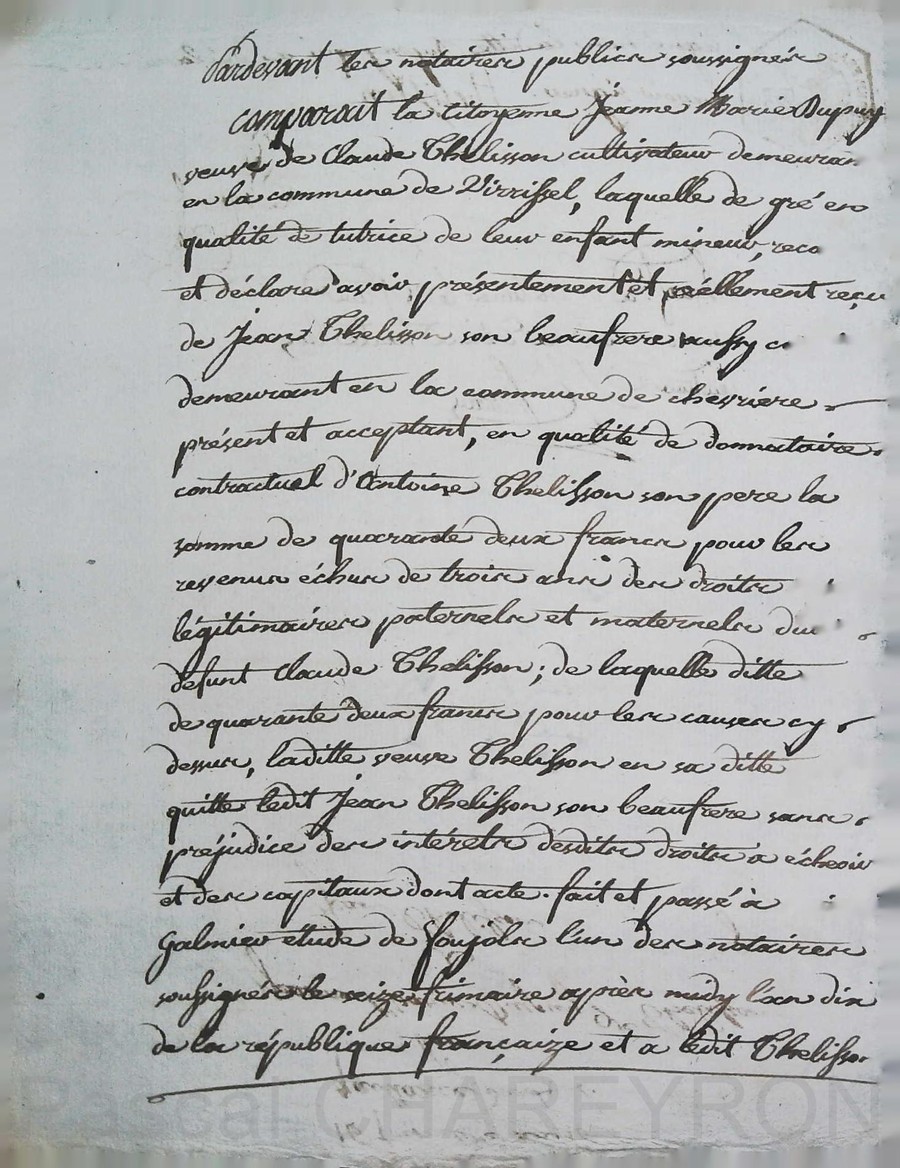 Pardevant les notaires publics soussignés
comparait la citoyenne Jeanne Marie Dupuy
veuve de Claude Thelisson cultivateur demeuran
en la commune de Virrissel, laquelle de gré en
qualité de tutrice de leur enfant mineur, reco
et déclare avoir présentement et, réellement reçu
de Jean Thelisson son beaufrere aussy c
demeurant en la commune de chevriere
présent et acceptant, en qualité de donnataire
contractuel d'Antoine Thelisson son pere la
somme de quarante deux francs pour les
revenus échus de trois ans des droits
légitimaires paternels et maternels du
defunt Claude Thelisson; de laquelle ditte
de quarante deux francs pour les causes cy
dessus, laditte veuve Thelisson en sa ditte
quitte ledit Jean Thelisson son beaufrere sans
préjudice des intérets desdits droits a écheoir
et des capitaux dont acte. fait et passé à
Galmier étude de foujols l'un des notaires
soussignés le seize frimaire après midy l'an dix
de la république françaize et a ledit Thelisson
Pascal CHAREYRON